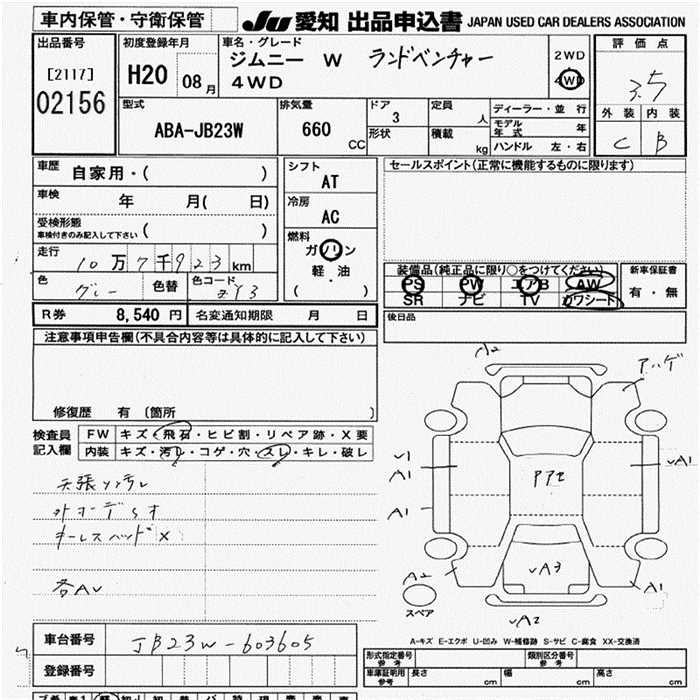 車内保管・守衛保管
JU 愛知 出品申込書 JAPAN USED CAR DEALERS ASSOCIATION
出品番号
[2117]
02156
初度登録年月
H20 08月
車名・グレード
ジムニー W ランドベンチャー
4WD
2WD
4WD
評価点
3.5
外装 内装
C B
型式
ABA-JB23W
排気量
660 CC
ドア
3
形状
定員
人
積載
kg
ディーラー・並行
モデル年式 年
ハンドル 左・右
車歴 自家用・( )
車検 年 月( 日)
受検形態
車検付きのみ記入して下さい ( )
走行 10万7千923km
色 グレー 色替 色コード ZY3
シフト
AT
冷房
AC
燃料
ガソリン
軽・油
( )
セールスポイント(正常に機能するものに限ります)
装備品(純正品に限り○をつけてください)
PS PW エアB AW
SR ナビ TV カワシート
新車保証書
有・無
R券 8,540円 名変通知期限 月 日
後日品
注意事項申告欄(不具合内容等は具体的に記入して下さい)
修復歴 有 〔箇所 〕
検査員
記入欄
FW キズ・飛石・ヒビ割・リペア跡・X要
内装 キズ・汚レ・コゲ・穴・スレ・キレ・破レ
天張リ汚レ
キーレスヘッド×
各AU
A2
アハゲ
U1
A1
A1
UA1
PPセ
A2
UA3
A1
UA2
スペア
A-キズ E-エクボ U-凹み W-補修跡 S-サビ C-腐食 XX-交換済
車台番号 JB23W-603605
登録番号
型式指定番号
参考
類別区分番号
参考
車庫証明用
参考
長さ cm 幅 cm 高さ cm